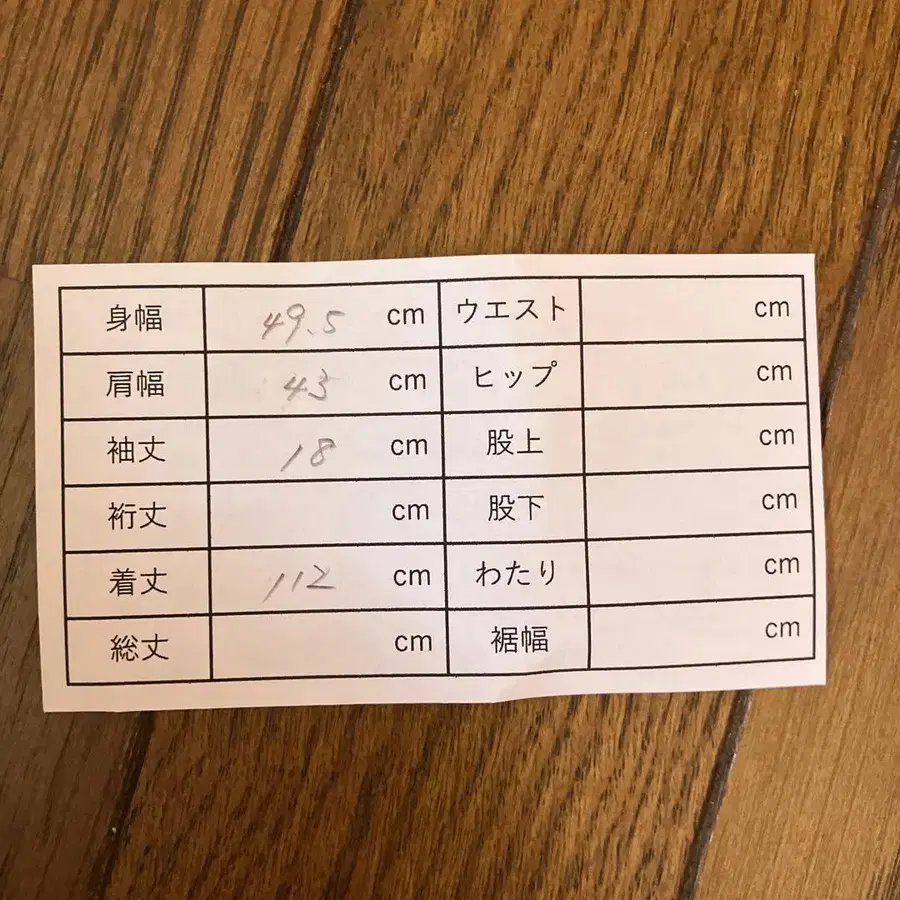 身幅 49.5 cm ウエスト cm
肩幅 43 cm ヒップ cm
袖丈 18 cm 股上 cm
裄丈 cm 股下 cm
着丈 112 cm わたり cm
総丈 cm 裾幅 cm